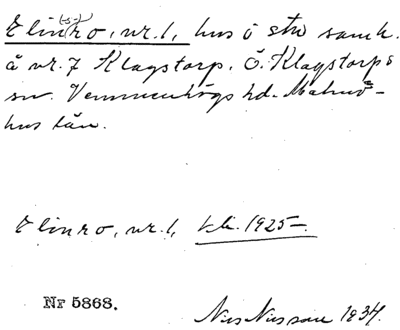 Elin(s)ro, nr. 1, hus o strö samh.
å nr. 7 Klagstorp, Ö. Klagstorps
sn. Vemmenhögs hd. Malmö-
hus län.
Elinro, nr. 1, 1925-.
Nr 5868.
Nils Nilsson 1834.